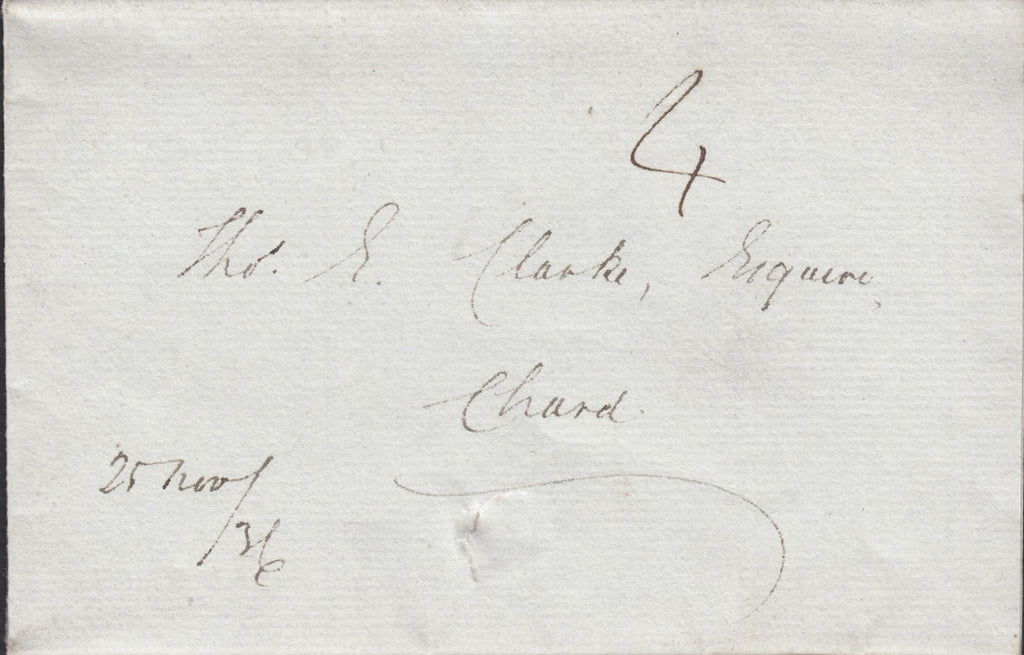 4
Thos. E. Clarke, Esquire,
Chard
25 Nov/
36